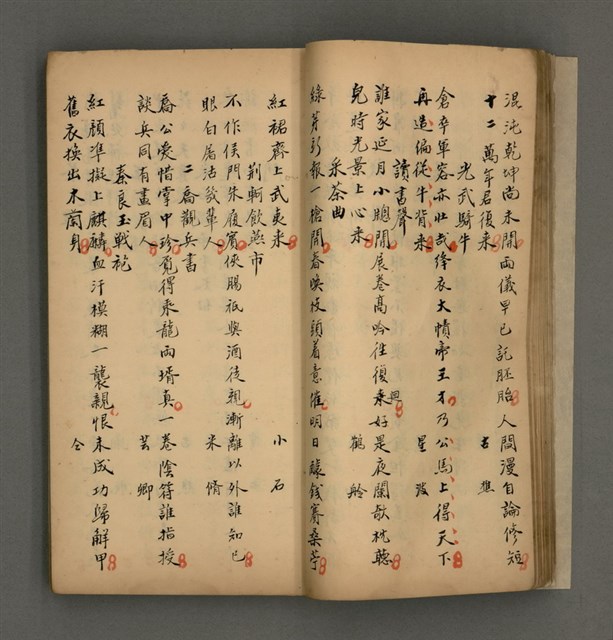 混沌乾坤尚未開兩儀早已託胚胎人間漫自論修短
十二萬年君復來　古樵
光武騎牛
倉卒軍容亦壯哉絳衣大幘帝王才乃公馬上得天下
再造偏從牛背來　星波
讀書聲
誰家延月小牕開展卷高吟往復來好是夜闌欹枕聽
興
兒時光景上心來　鶴舲
采茶曲
綠芽新報一槍開春映枝頭着意催明日釀錢賽桑苧
紅裙齊上武夷來　小石
荆軻飲燕市
不作侯門朱履賓俠腸祇與酒徒親漸離以外誰知己
眼白屠沽幾輩人　米脩
二喬觀兵書
喬公愛惜掌中珍覓得乘龍兩壻真一卷陰符誰指授
談兵同有畫眉人　芸卿
秦良玉戰袍
紅顏準擬上麒麟血汗模糊一襲親恨未成功歸解甲
舊衣換出木蘭身　仝